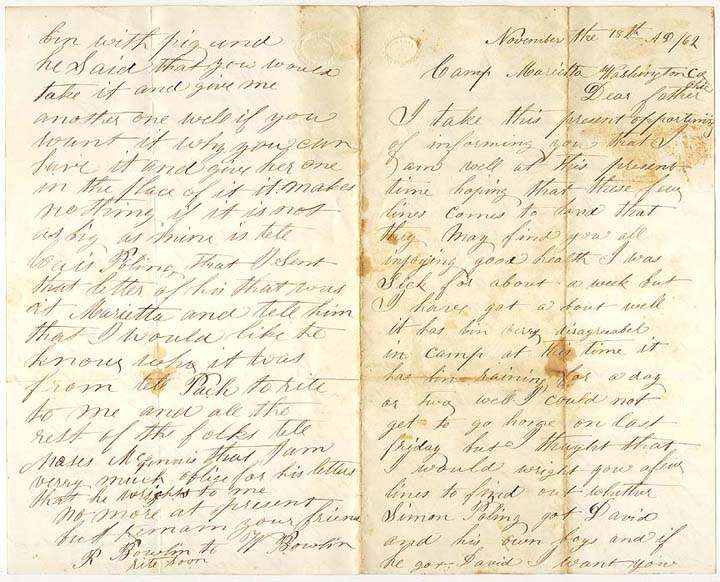 November the 18th AD /62
Camp Marietta Washington Co
Ohio
Dear father
I take this present opportunity
of informing you that I
am well at this present
time hoping that these few
lines comes to hand that
they may find you all
injoying good health I was
Sick for about a week but
I have got a bout well
it has bin very disagreabel
in camp at this time it
has bin raining for a day
or two well I could not
get to go home on last
friday but I thught that
I would wright you a few
lines to find out whether
Simon Poling got David
and his own boys and if
he got David I want you
bin with pig und
he Said that you would
take it and give me
another one well if you
want it why you can
have it and give her one
in the place of it it makes
nothing if it is not
as big as mine is tell
Poling that I Sent
that letter of his that was
at Marietta and tell him
that I would like he
know who it was
from tell to rite
to me and all the
rest of the folks tell
Moses that I am
verry much oblige for his letters
that he wrights to me
no more at present
but remain your friend
R Bowlin to W Bowlin
rite soon